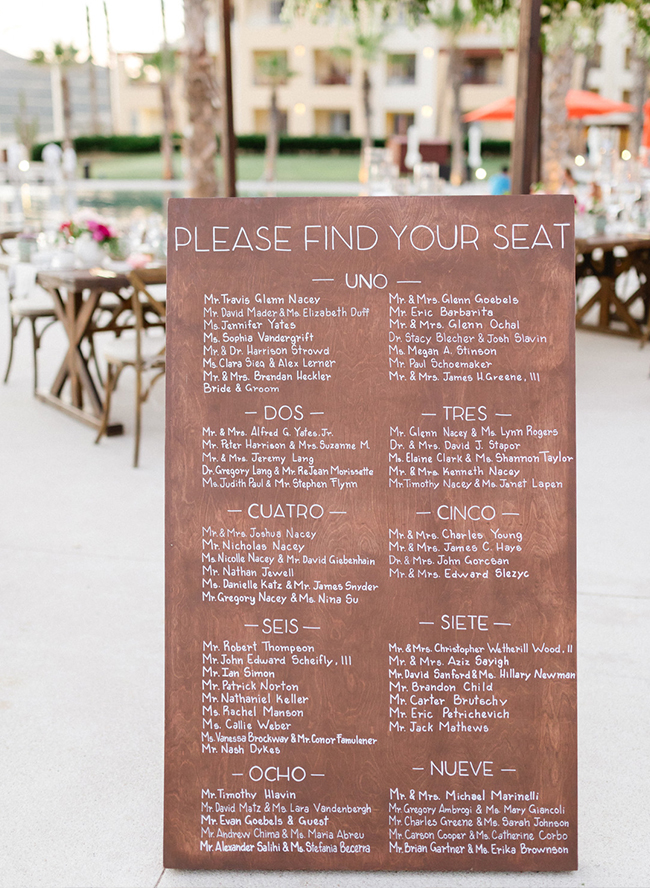 PLEASE FIND YOUR SEAT
— UNO —
Mr. Travis Glenn Nacey
Mr. David Mader & Ms. Elizabeth Duff
Ms. Jennifer Yates
Ms. Sophia Vandergrift
Mr. & Dr. Harrison Strowd
Ms. Clara Sieg & Alex Lerner
Mr. & Mrs. Brendan Heckler
Bride & Groom
Mr. & Mrs. Glenn Goebels
Mr. Eric Barbarita
Mr. & Mrs. Glenn Ochal
Dr. Stacy Blecher & Josh Slavin
Ms. Megan A. Stinson
Mr. Paul Schoemaker
Mr. & Mrs. James H. Greene, III
— DOS —
Mr. & Mrs. Alfred G. Yates, Jr.
Mr. Peter Harrison & Mrs. Suzanne M.
Mr. & Mrs. Jeremy Lang
Dr. Gregory Lang & Mr. ReJean Morissette
Ms. Judith Paul & Mr. Stephen Flynn
— TRES —
Mr. Glenn Nacey & Ms. Lynn Rogers
Dr. & Mrs. David J. Stapor
Ms. Elaine Clark & Ms. Shannon Taylor
Mr. & Mrs. Kenneth Nacey
Mr. Timothy Nacey & Ms. Janet Lapen
— CUATRO —
Mr. & Mrs. Joshua Nacey
Mr. Nicholas Nacey
Ms. Nicolle Nacey & Mr. David Giebenhain
Mr. Nathan Jewell
Ms. Danielle Katz & Mr. James Snyder
Mr. Gregory Nacey & Ms. Nina Su
— CINCO —
Mr. & Mrs. Charles Young
Mr. & Mrs. James C. Hays
Dr. & Mrs. John Gorcsan
Mr. & Mrs. Edward Slezyc
— SEIS —
Mr. Robert Thompson
Mr. John Edward Scheifly, III
Mr. Ian Simon
Mr. Patrick Norton
Mr. Nathaniel Keller
Ms. Rachel Manson
Ms. Callie Weber
Ms. Vanessa Brockway & Mr. Conor Famulener
Mr. Nash Dykes
— SIETE —
Mr. & Mrs. Christopher Wetherill Wood, II
Mr. & Mrs. Aziz Sayigh
Mr. David Sanford & Ms. Hillary Newman
Mr. Brandon Child
Mr. Carter Brutschy
Mr. Eric Petrichevich
Mr. Jack Mathews
— OCHO —
Mr. Timothy Hlavin
Mr. David Matz & Ms. Lara Vandenbergh
Mr. Evan Goebels & Guest
Mr. Andrew Chima & Ms. Maria Abreu
Mr. Alexander Salihi & Ms. Stefania Becerra
— NUEVE —
Mr. & Mrs. Michael Marinelli
Mr. Gregory Ambrogi & Ms. Mary Giancoli
Mr. Charles Greene & Ms. Sarah Johnson
Mr. Carson Cooper & Ms. Catherine Corbo
Mr. Brian Gartner & Ms. Erika Brownson